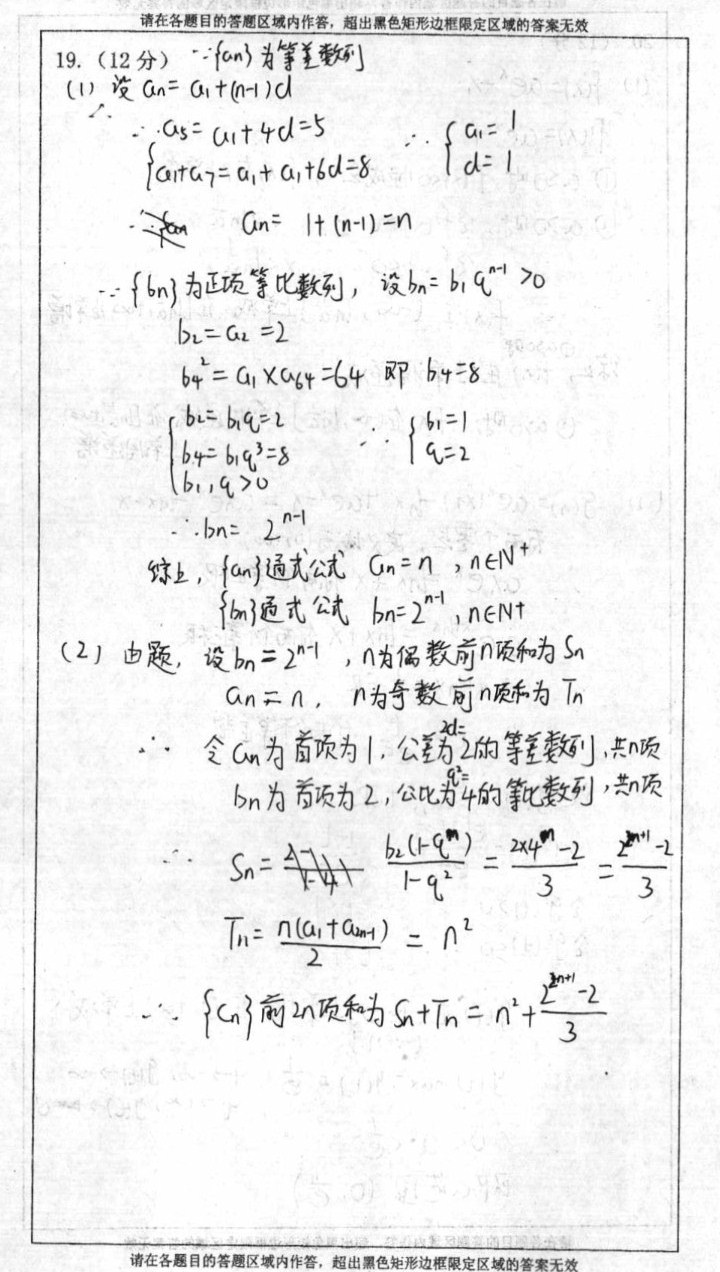 请在各题目的答题区域内作答，超出黑色矩形边框限定区域的答案无效
19.(12分) ∵{an}为等差数列
(1) 设 an = a1+(n-1)d
∴ a5 = a1+4d=5 ∴ { a1=1
{ a1+a7 = a1+a1+6d=8 d=1
an = 1+(n-1)=n
∵{bn}为正项等比数列，设bn=b1q^{n-1}>0
b2=a2=2
b4^2=a1×a64=64 即 b4=8
{ b2=b1q=2 ∴ { b1=1
b4=b1q^3=8 q=2
b1,q>0
∴ bn= 2^{n-1}
综上，{an}通式公式 an=n ,n∈N^+
{bn}通式公式 bn=2^{n-1},n∈N+
(2) 由题，设bn=2^{n-1}，n为偶数前n项和为Sn
an=n，n为奇数前n项和为Tn
∴ 令an为首项为1，公差为2d=2的等差数列，共n项
bn为首项为2，公比为q^2=4的等比数列，共n项
Sn = b2(1-q^{2n})/(1-q^2) = (2×4^n-2)/3 = (2^{2n+1}-2)/3
Tn = n(a1+a2n-1)/2 = n^2
∴ {cn}前2n项和为Sn+Tn=n^2+(2^{2n+1}-2)/3
请在各题目的答题区域内作答，超出黑色矩形边框限定区域的答案无效